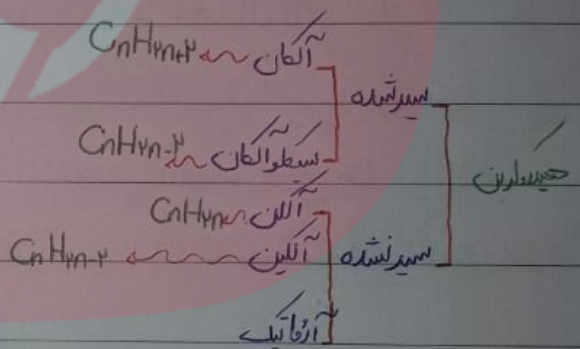 هیدروکربن
سیرشده
آلکان CnH۲n+۲
سیکلوآلکان CnH۲n-۲
سیرنشده
آلکن CnH۲n
آلکین CnH۲n-۲
آروماتیک